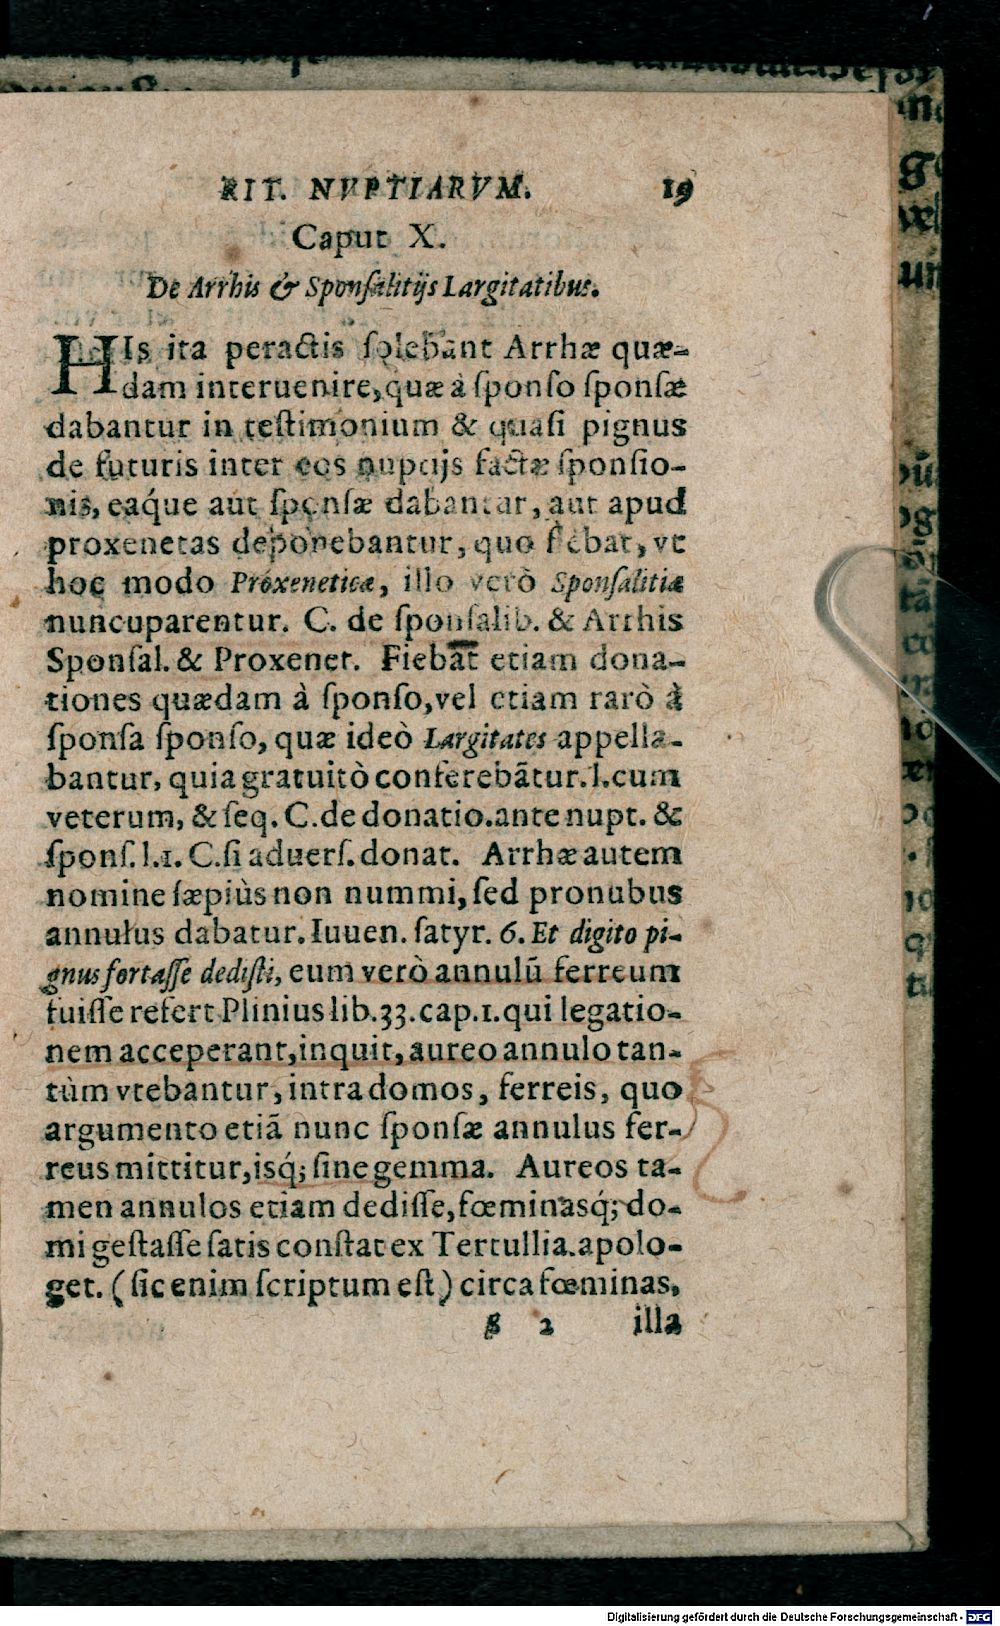 RIT. NVPTIARVM. 19
Caput X.
De Arrhis & Sponſalitijs Largitatibus.
HIs ita peractis ſolebant Arrhæ quæ-
dam interuenire, quæ à ſponſo ſponſæ
dabantur in teſtimonium & quaſi pignus
de futuris inter eos nuptijs factæ ſponſio-
nis, eáque aut ſponſæ dabantur, aut apud
proxenetas deponebantur, quo fiebat, vt
hoc modo Proxeneticæ, illo verò Sponſalitiæ
nuncuparentur. C. de ſponſalib. & Arrhis
Sponſal. & Proxenet. Fiebāt etiam dona-
tiones quædam à ſponſo, vel etiam rarò à
ſponſa ſponſo, quæ ideò Largitates appella-
bantur, quia gratuitò conferebãtur. l. cum
veterum, & ſeq. C. de donatio. ante nupt. &
ſponſ. l. 1. C. ſi aduerſ. donat. Arrhæ autem
nomine ſæpiùs non nummi, ſed pronubus
annulus dabatur. Iuuen. ſatyr. 6. Et digito pi-
gnus fortaſſe dediſti, eum verò annulũ ferreum
fuiſſe refert Plinius lib. 33. cap. 1. qui legatio-
nem acceperant, inquit, aureo annulo tan-
tùm vtebantur, intra domos, ferreis, quo
argumento etiã nunc ſponſæ annulus fer-
reus mittitur, isq́; ſine gemma. Aureos ta-
men annulos etiam dediſſe, fœminasq́; do-
mi geſtaſſe ſatis conſtat ex Tertullia. apolo-
get. (ſic enim ſcriptum eſt) circa fœminas,
g 2 illa
Digitalisierung gefördert durch die Deutsche Forschungsgemeinschaft - DFG